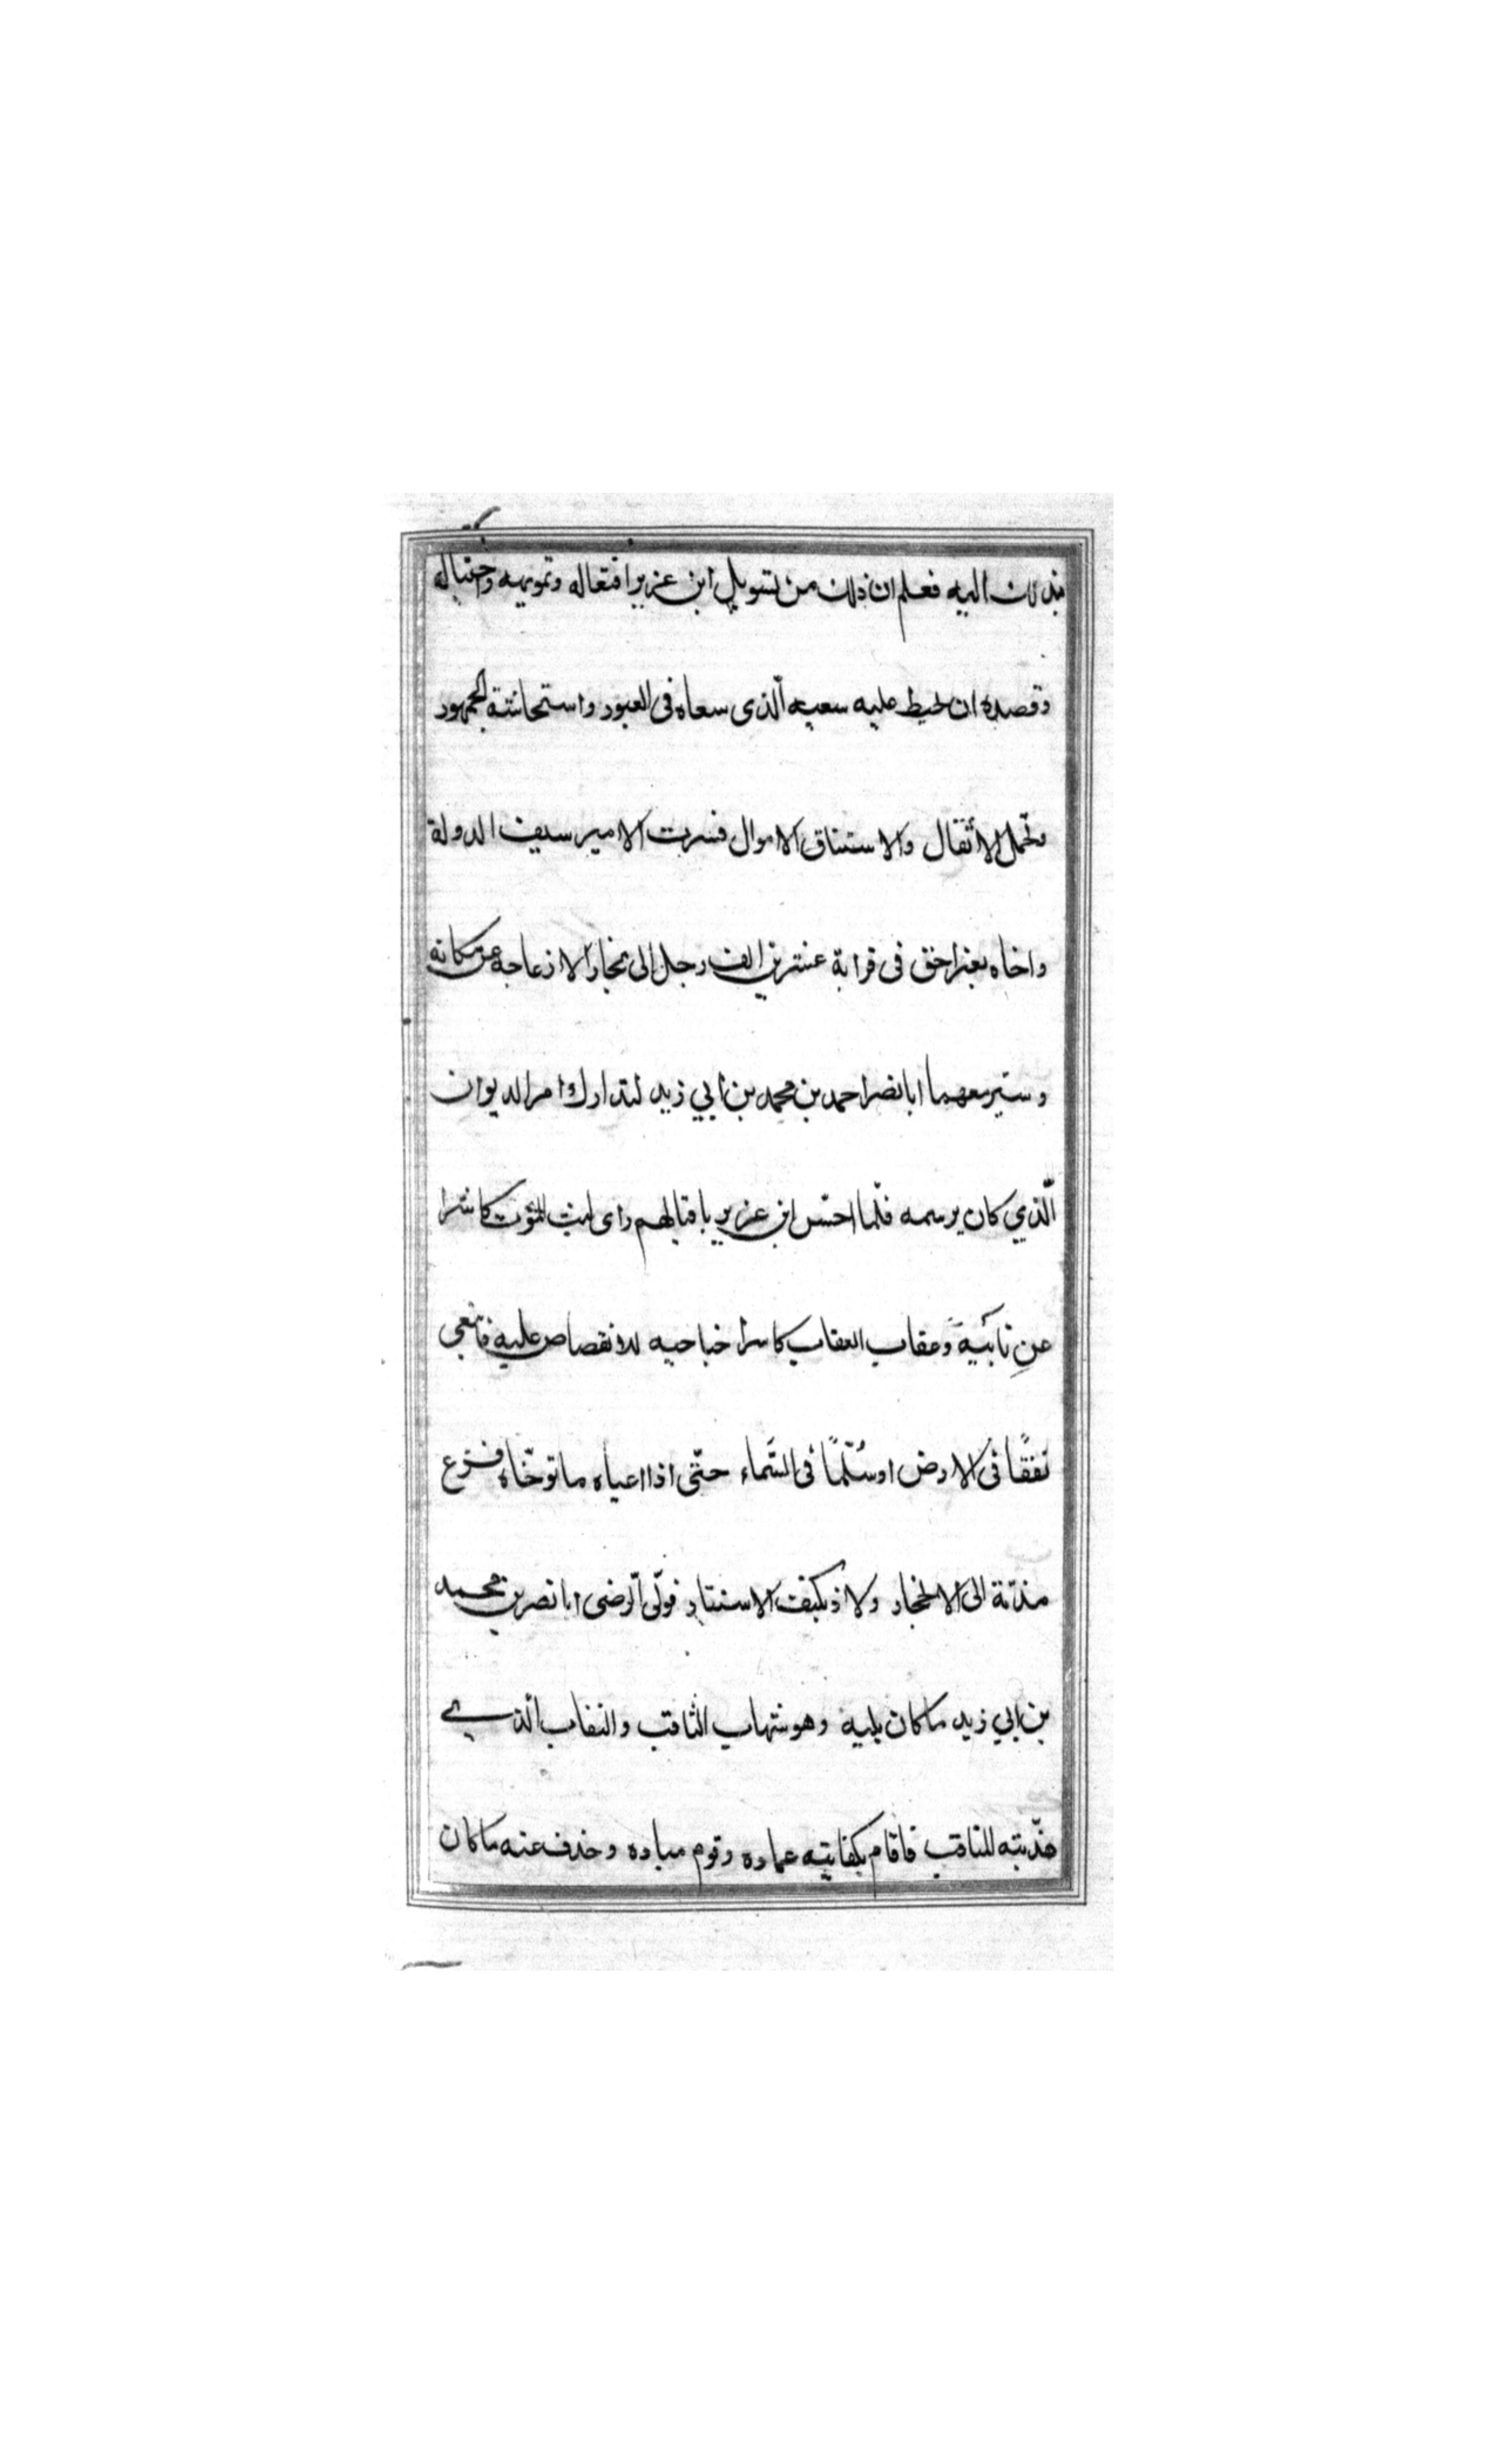 بذلك اليه فعلم ان ذلك من تسويل ابن عزيز افتعاله وتمويهه واحتياله
وقصده ان يحبط عليه سعيه الّذى سعاه فى العبور واستحاشة الجمهور
وتحمل الأثقال والاستناق الاموال فسرب الامير سيف الدولة
واخاه بغراجق فى قرابة عشرين الف رجل الى بخارا لازعاجه عن مكانه
وسيّر معهما ابا نصر احمد بن محمد بن ابي زيد لتدارك امر الديوان
الّذي كان يرسمه فلّما احسّ ابن عزيز باقبالهم راى ليث الموت كاشرا
عن نابَيه وعقاب العقاب كاسرا جناحيه للانقضاض عليه فابتغى
نفقًا فى الارض اوسُلّمًا فى السّماء حتّى اذا اعياه ما توخّاه فزع
منّة الى الانجحار ولاذ بكنف الاستتار فولّى الرّضى ابا نصر بن محمد
بن ابي زيد ما كان يليه وهو شهاب الثاقب والنقاب الّذي
هذّبته المناقب فاقام بكفايته عماده وقوم مياده وحذف عنه ما كان